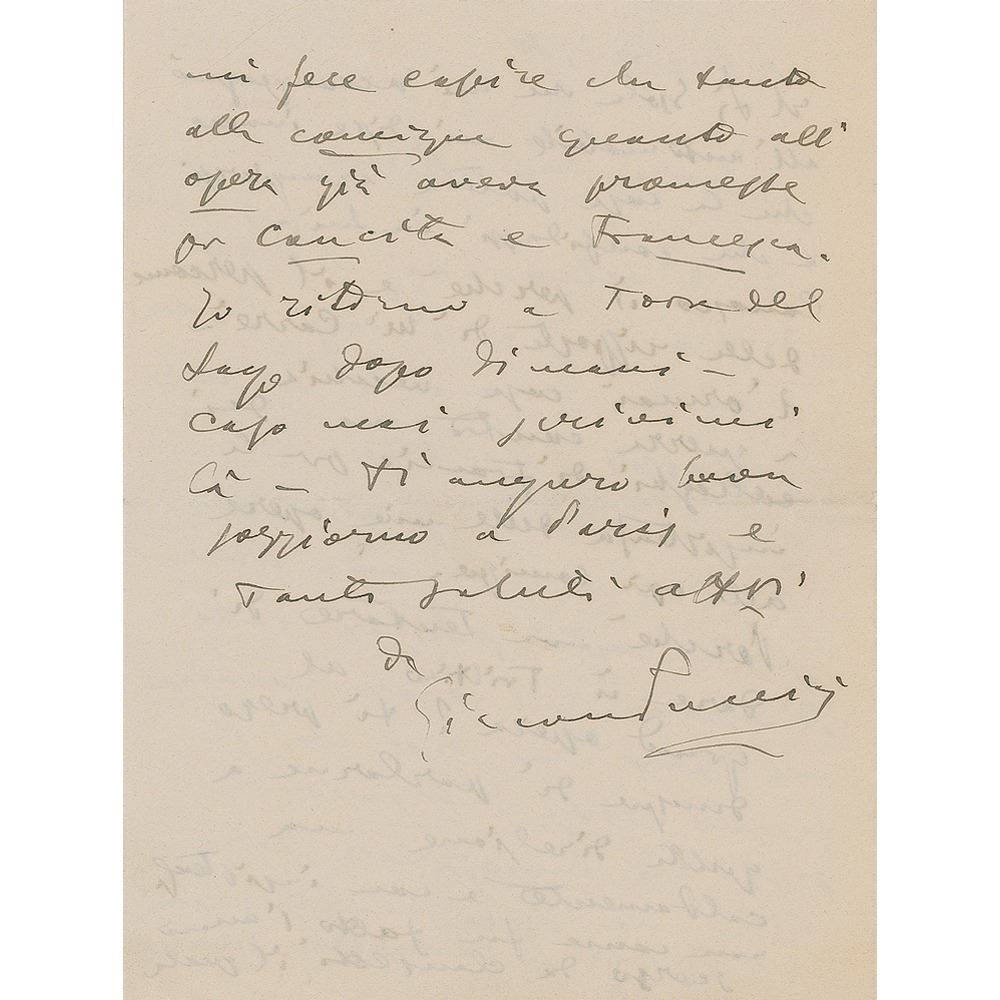 mi fece capire che tanto
alla comique quanto all'
opera già aveva promesse
per Conchita e Francesca.
Io ritorno a Torre del
Lago dopo dimani –
caso mai scrivimi
là – Ti auguro buon
soggiorno a Paris e
Tanti saluti affi
da
Giacomo Puccini